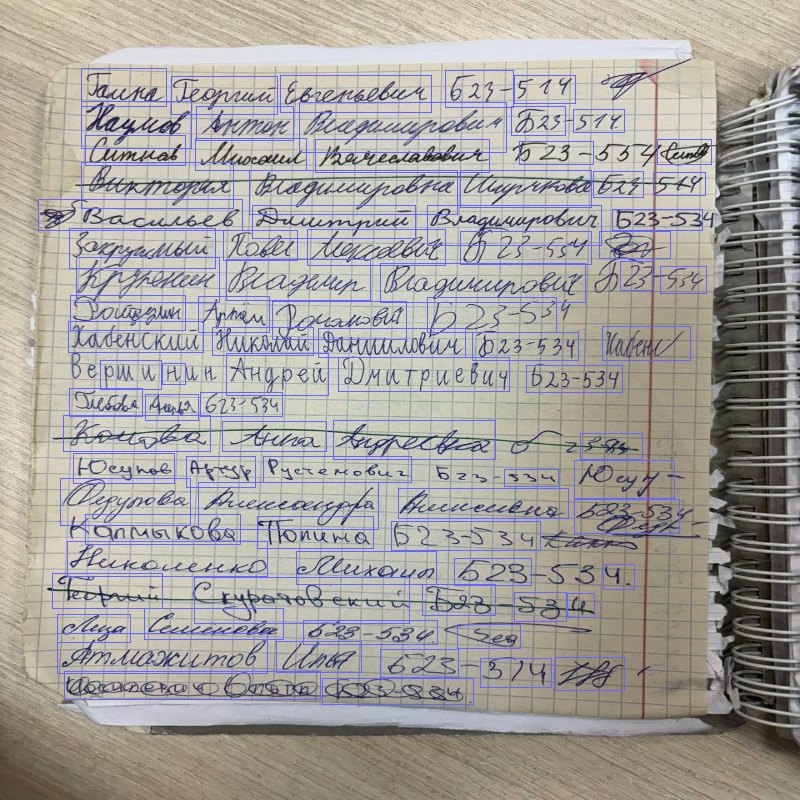 Галка Георгий Евгеньевич Б23-514
Наумов Антон Владимирович Б23-514
Ситнов Михаил Вячеславович Б23-554
Виктория Владимировна Ширякова Б23-514
Васильев Дмитрий Владимирович Б23-534
Закружный Павел Алексеевич Б23-534
Владимир Владимирович Б23-534
Артём Романович Б23-534
Хабенский Николай Даниилович Б23-534 Хабенс
Вершинин Андрей Дмитриевич Б23-534
Глебова Б23-534
Котова Анна Андреевна
Юсупов Артур Русченович Б23-534 Юсуп
Федулова Александра Алексеевна Б23-534
Калмыкова Полина Б23-534
Николенко Михаил Б23-534.
Георгий Скуратовский Б23-534
Лиза Семенова Б23-534
Атмажитов Илья Б23-514
Б23-534.